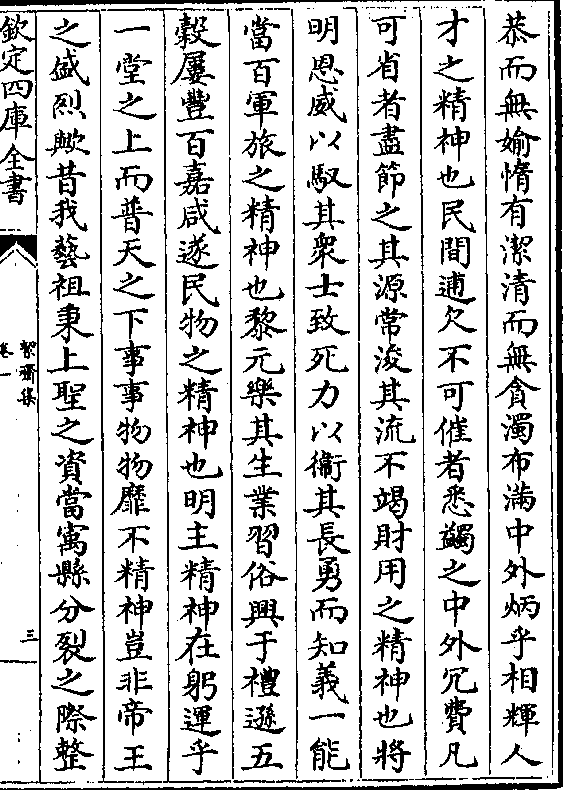 恭而無婾惰有潔清而無貪濁布滿中外炳乎相輝人
才之精神也民間逋欠不可催者悉蠲之中外冗費凡
可省者盡節之其源常浚其流不竭財用之精神也將
明恩威以馭其衆士致死力以衞其長勇而知義一能
當百軍旅之精神也黎元樂其生業習俗興于禮遜五
穀屢豐百嘉咸遂民物之精神也明主精神在躬運乎
一堂之上而普天之下事事物物靡不精神豈非帝王
之盛烈歟昔我藝祖秉上聖之資當寓縣分裂之際整
欽定四庫全書
絜齋集
卷一
三